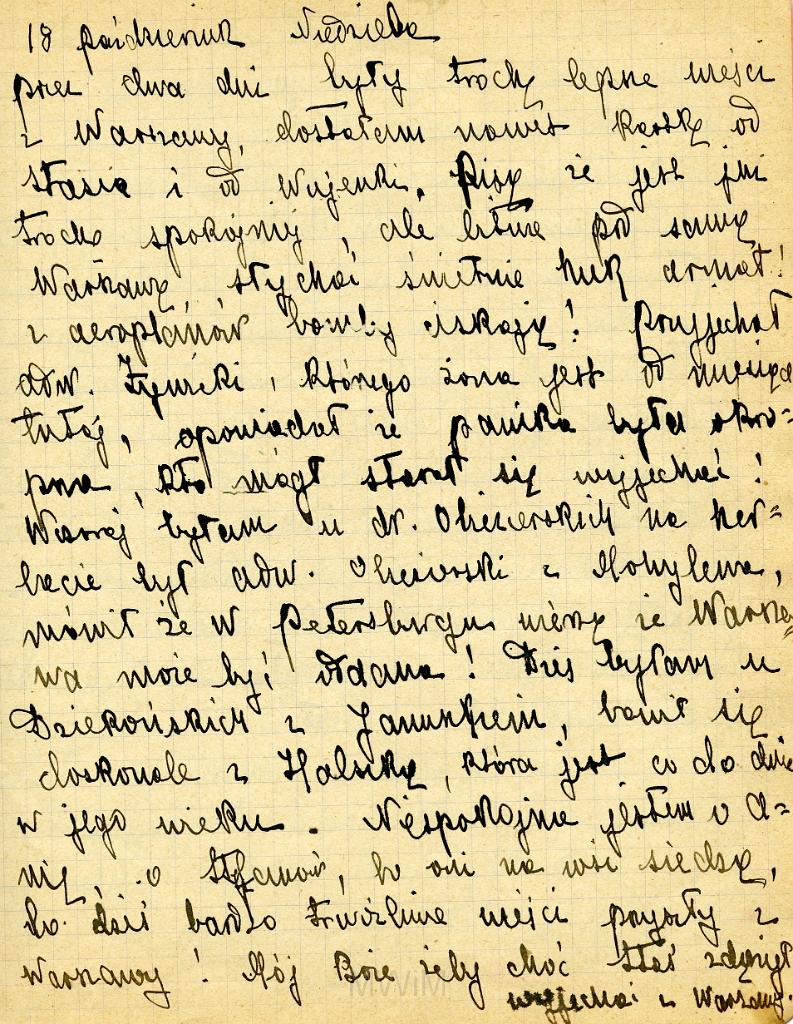 18 październik Niedziela
przez dwa dni były trochę lepsze wieści
z Warszawy, dostałam nawet kartkę od
Stasia i od Wujenki. Piszą że jest już
trochę spokojniej, ale bitwa pod samą
Warszawą, słychać świetnie huk armat!
z aeroplanów bomby ciskają! Przyjechał
adw. , którego żona jest od miesiąca
tutaj, opowiadał że panika była okro=
pna, kto mógł starał się wyjechać!
Wczoraj byłam u dr. na her=
bacie był adw. z Mohylewa,
mówił że w Petersburgu mówią że Warsza=
wa może być oddana! Dziś byłam u
Dziekońskich z Januszkiem, bawił się
doskonale z Halszką, która jest co do dnia
w jego wieku. Niespokojna jestem o A=
nię, o Stefanów, bo oni na wsi siedzą,
bo dziś bardzo trwożliwe wieści przyszły z
Warszawy! Mój Boże żeby choć Staś zdążył
wyjechać z Warszawy.
MWiM